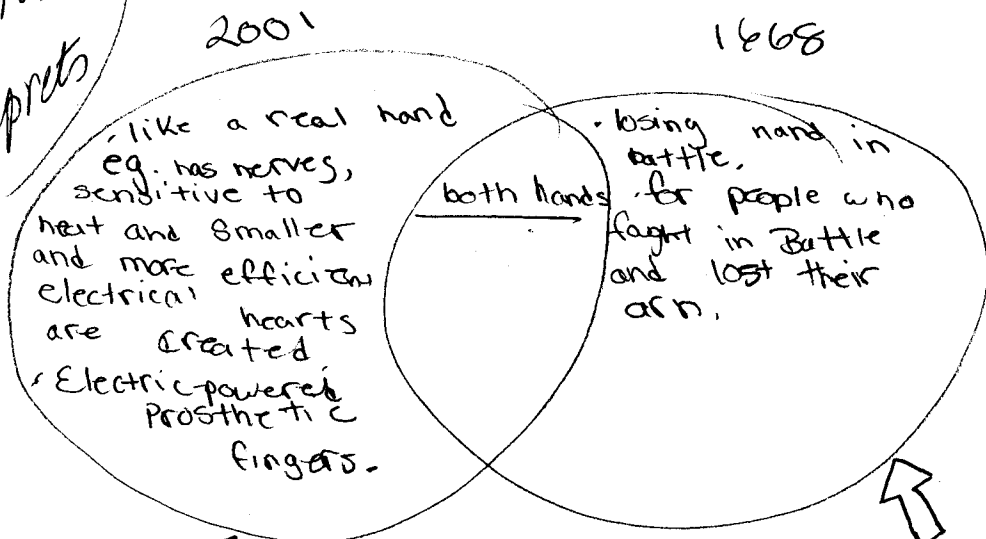 prets
2001
1668
· like a real hand
eg. has nerves,
sensitive to
heat and smaller
and more efficient
electrical hearts
are created
· Electric-powered
Prosthetic
fingers.
both hands
· losing hand in
battle.
· for people who
faght in Battle
and lost their
arm.